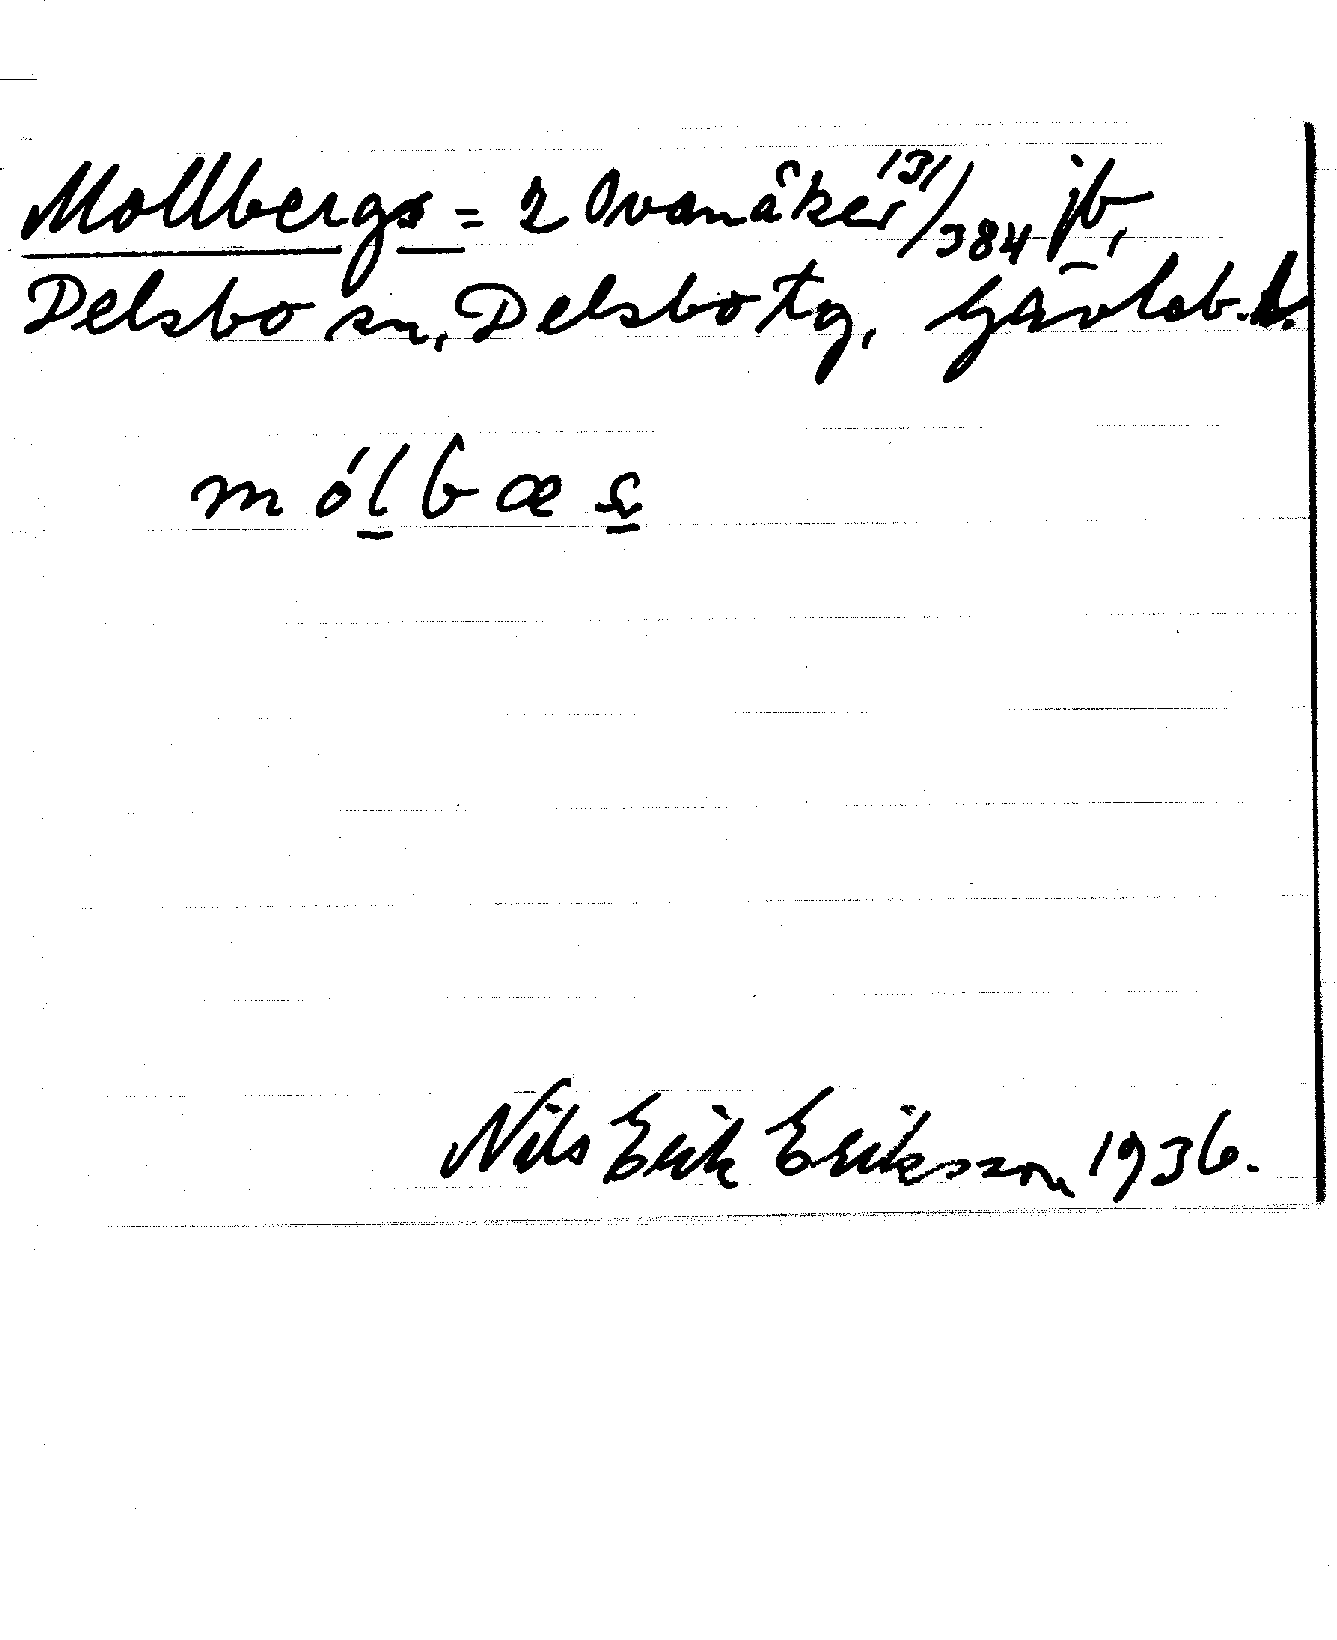 Mollbergs = 2 Ovanåker 131/384 jb,
Delsbo sn, Delsbo tg, Gävleb. l.
mólbæs
Nils Erik Eriksson 1936.